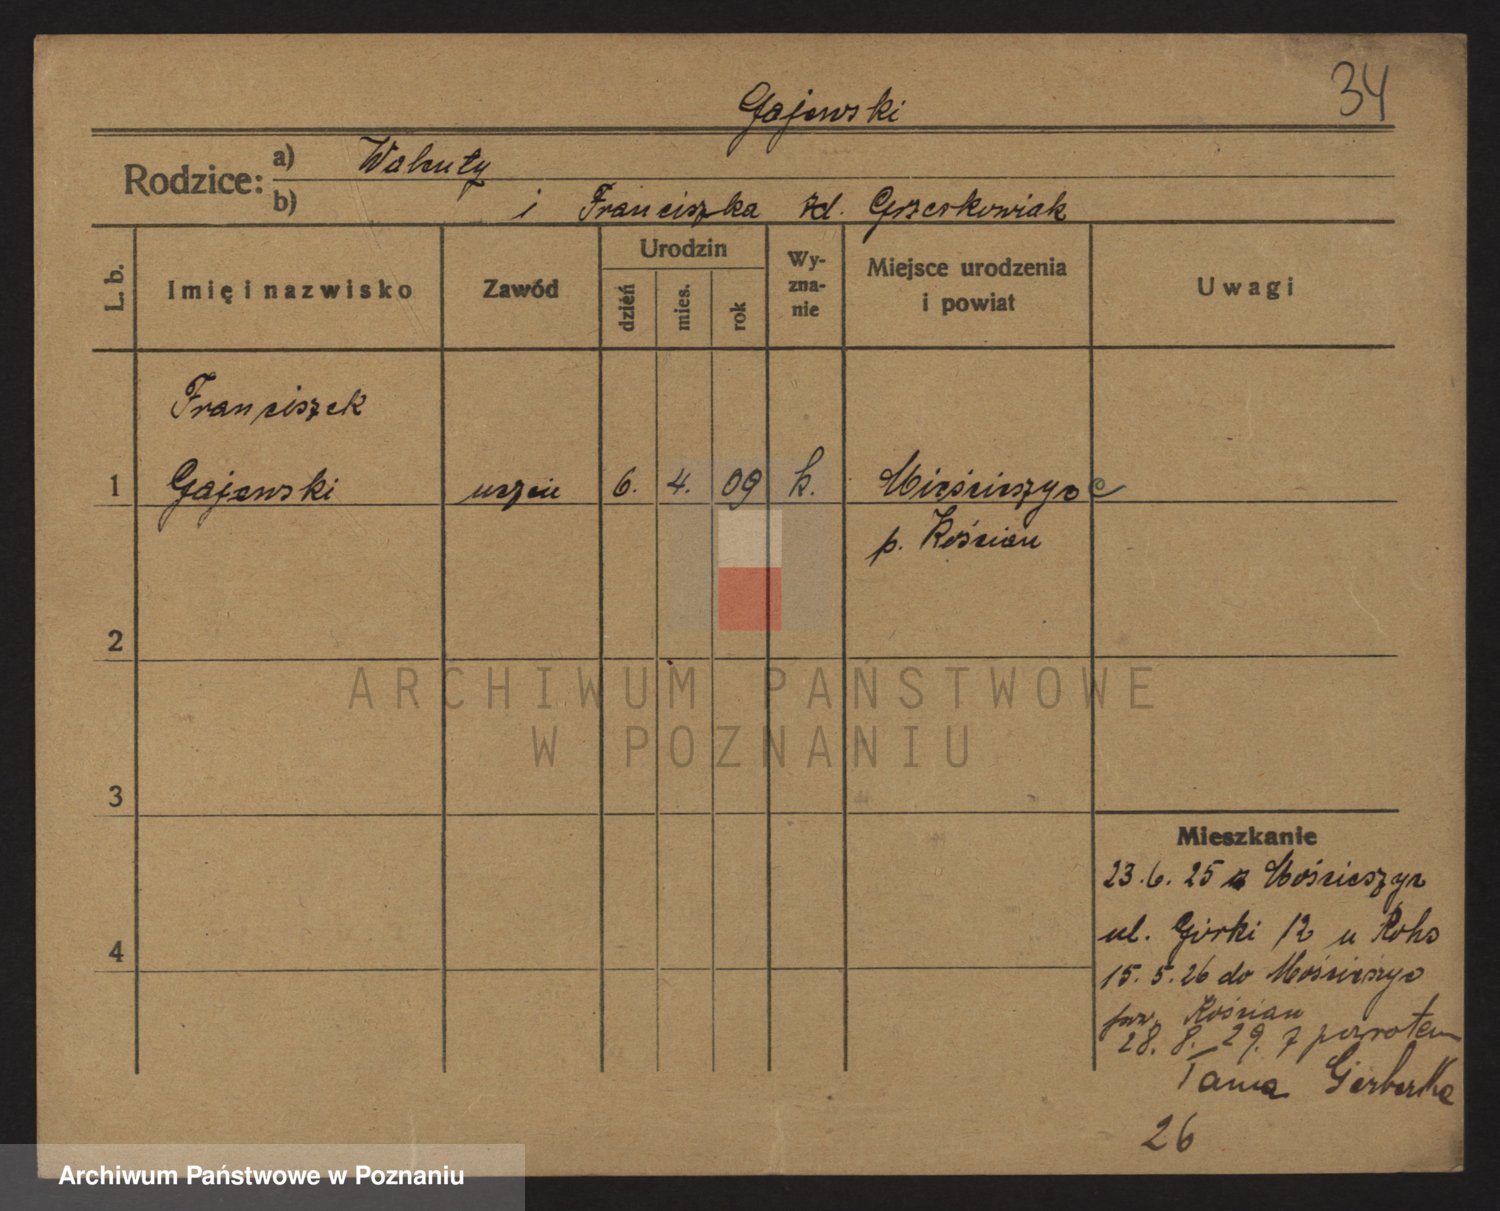 34
Gajewski
Rodzice: a) Walenty
b) i Franciszka zd. Grzeskowiak
L. b.
Imię i nazwisko
Zawód
Urodzin
dzień
mies.
rok
Wy-
zna-
nie
Miejsce urodzenia
i powiat
Uwagi
Franciszek
1 Gajewski uczeń 6. 4. 09 k.
p. Kościan
2
ARCHIWUM PAŃSTWOWE
W POZNANIU
3
Mieszkanie
23.6.25 z
4
ul. Górki 12 u
15.5.26 do
pow. Kościan
28.8.29. z powrotem
Tama Garbarska
26
Archiwum Państwowe w Poznaniu